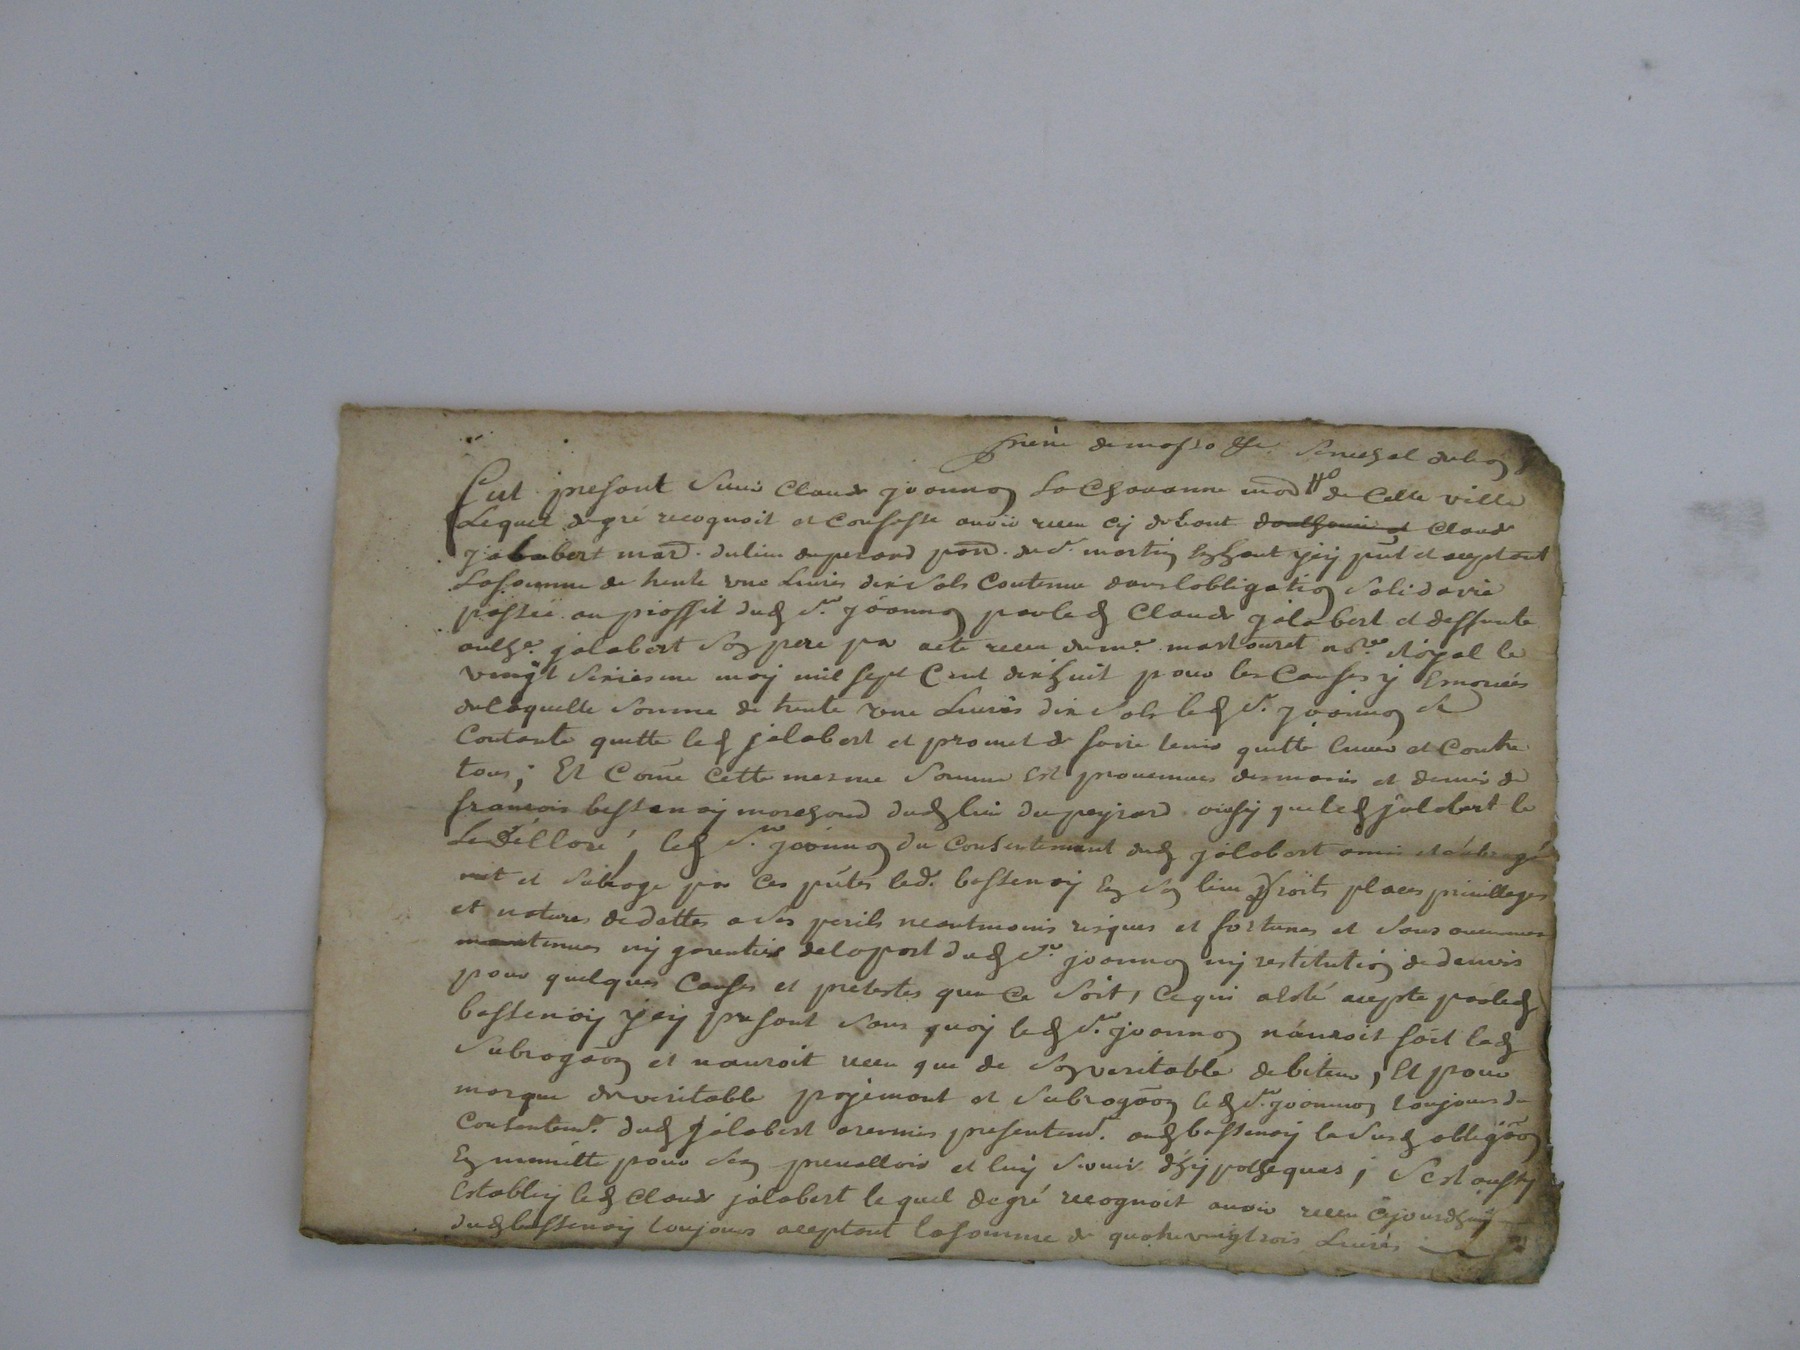 fut present Sieur Claude joannon La Chavanne mar͞d de Cette ville
Lequel de gré recognoit et Confesse avoir receu cy devant Claude
jalabert mar͞d. du lieu du peirard par͞. de St. martin y icy pn͞t et aceptant
La somme de trente une Livres dix Sols Contenue dans lobligation Solidaire
passée au proffit dud Sr. joannon par led Claude jalabert et deffunte
anth.e jalabert Son pere par acte receu du me. martouret nore. Royal le
vingt Sixiesme may mil sept Cent dix huit pour les Causes y Enoncées
de laquelle Somme de trente une Livres dix Sols led Sr. joannon Se
Contante quitte led jalabert et promet de faire tenir quitte Envers et Contre
tous; Et Com͞e Cette mesme Somme Est provenues des mains et deniers de
francois bessenay marchand dud lieu du peyrard ainsy que led jalabert le
Le déclaré, led Sr. joannon du Consentement dud jalabert
met et Subroge par Ces pn͞tes led. bessenay En Son lieu Droits places privilleges
et natures de dettes a Ses perils neantmoins risques et fortunes et Sans aucunes
maintenues ny garenties de la part dud Sr. joannon ny restitution de deniers
pour quelques Causes et pretextes que Ce Soit, Ce qui a esté acepté par led
bessenay y icy present Sans quoy led Sr. joannon nauroit fait lad
Subrogaõn et nauroit receu que de Son veritable debiteur, Et pour
marque de veritable payement et Subrogaõn led Sr. joannon toujours du
Consentemt. dud jalabert a remis presentemt. aud bessenay la Susd obligaõn
En minutte pour Sen prevalloir et luy Servir d'hypotheques; Sest aussy
Estably led Claude jalabert lequel de gré recognoit avoir receu Ce jourdhuy
dud bessenay toujours aceptant la somme de quatre vingt trois Livres